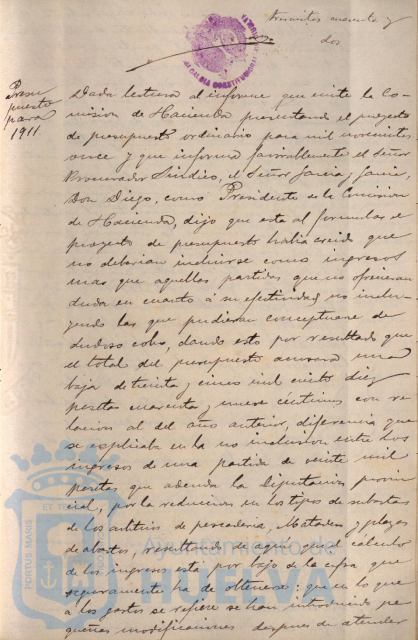 trescientos cuarenta y
dos
ALCALDIA CONSTITUCIONAL
Presu
puesto
para
1911
Dada lectura al informe que emite la Co-
mision de Hacienda presentando el proyecto
de presupuesto ordinario para mil novecientos
once y que informa favorablemente el Señor
Procurador Síndico, el Señor García y García,
Don Diego, como Presidente de la Comision
de Hacienda, dijo que esta al formular el
proyecto de presupuesto había creido que
no deberian incluirse como ingresos
mas que aquellas partidas que no ofrecieran
duda en cuanto á su efectividad no inclu-
yendo las que pudieran conceptuarse de
dudoso cobro, dando esto por resultado que
el total del presupuesto acusara una
baja de treinta y cinco mil ciento diez
pesetas cuarenta y nueve céntimos con re-
lacion al del año anterior, diferencia que
se esplicaba en la no inclusion entre los
ingresos de una partida de veinte mil
pesetas que adeuda la Diputacion provin
cial, por la reduccion en los tipos de subastas
de los arbitrios de pescaderia, Matadero y plazas
de abastos, resultando de aqui que el cálculo
de los ingresos está por bajo de la cifra que
seguramente ha de obtenerse: que en lo que
á los gastos se refiere se han introducido pe
queñas modificaciones despues de atender
PORTUS MARIS
ET TERRAE
Ayuntamiento de
HUELVA